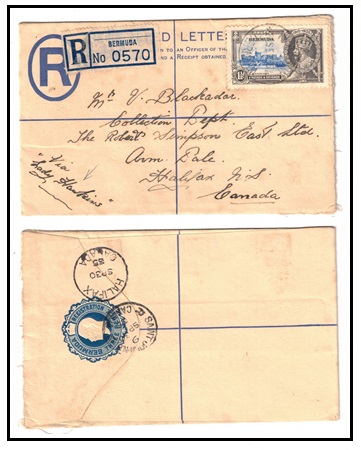 D LETTE
R
BERMUDA
R No 0570
TION TO AN OFFICER OF THE
NG A RECEIPT OBTAINED.
BERMUDA
1½d
Mr V. Blackadar.
Collection Dept.
The Robert Simpson East Ltd.
Arm Dale.
Halifax N.S.
Canada
Via
Lady Hawkins
HALIFAX
SP 30
35
CANADA
BERMUDA
REGISTRATION
SAINT
R